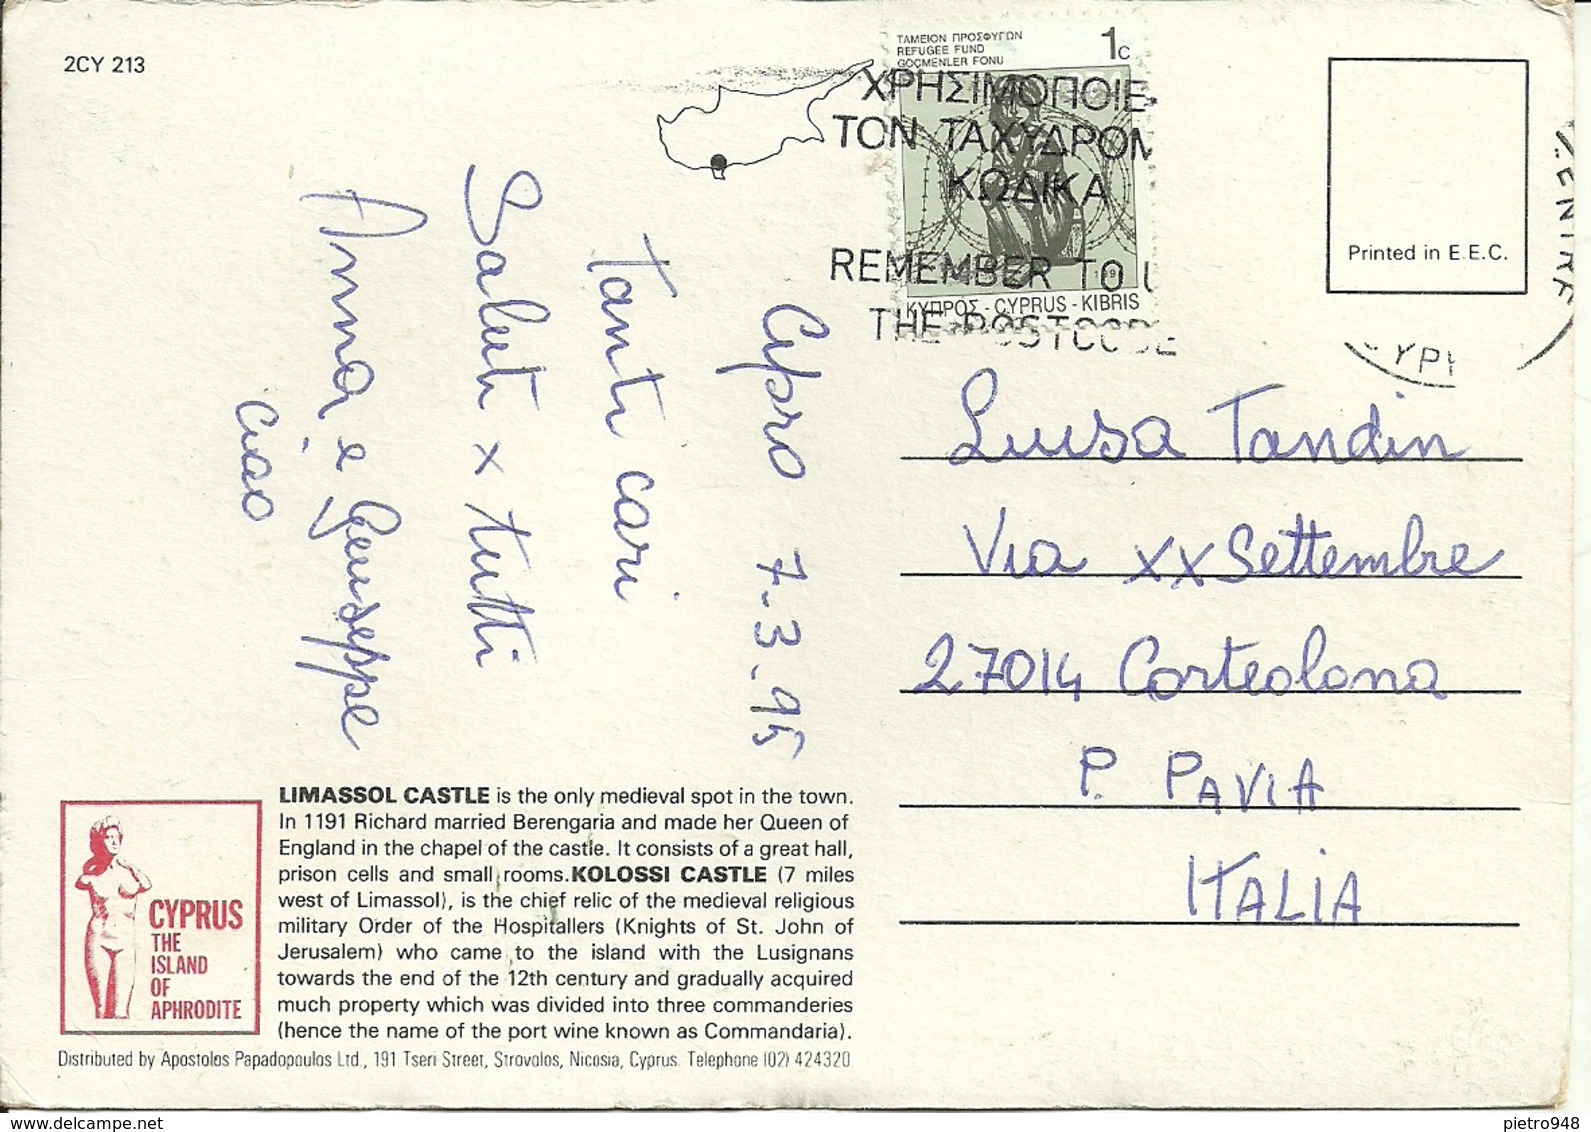 2CY 213
ΤΑΜΕΙΟΝ ΠΡΟΣΦΥΓΩΝ
REFUGEE FUND
GÖÇMENLER FONU
1c
ΧΡΗΣΙΜΟΠΟΙΕ
ΤΟΝ ΤΑΧΥΔΡΟΜ
ΚΩΔΙΚΑ
REMEMBER TO U
THE POSTCODE
ΚΥΠΡΟΣ - CYPRUS - KIBRIS
Printed in E.E.C.
Cipro 7-3.95
Tanti cari
Saluti x tutti
Anna e Giuseppe
Ciao
Luisa Tandin
Via XX Settembre
27014 Corteolona
P. PAVIA
ITALIA
LIMASSOL CASTLE is the only medieval spot in the town.
In 1191 Richard married Berengaria and made her Queen of
England in the chapel of the castle. It consists of a great hall,
prison cells and small rooms. KOLOSSI CASTLE (7 miles
west of Limassol), is the chief relic of the medieval religious
military Order of the Hospitallers (Knights of St. John of
Jerusalem) who came to the island with the Lusignans
towards the end of the 12th century and gradually acquired
much property which was divided into three commanderies
(hence the name of the port wine known as Commandaria).
CYPRUS
THE
ISLAND
OF
APHRODITE
Distributed by Apostolos Papadopoulos Ltd., 191 Tseri Street, Strovolos, Nicosia, Cyprus. Telephone (02) 424320
www.delcampe.net
pietro948